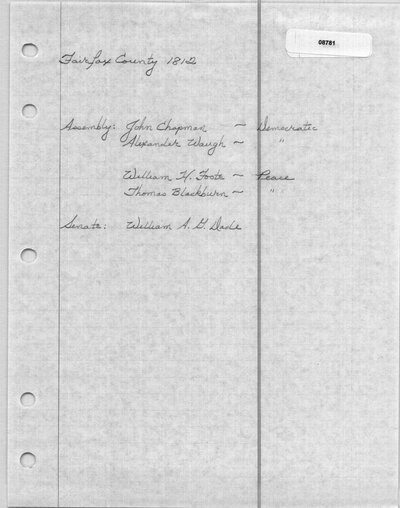 08781
Fairfax County 1812
Assembly: John Chapman ~ Democratic
Alexander Waugh ~ "
William H. Foote ~ Peace
Thomas Blackburn ~ "
Senate: William A. G. Dade